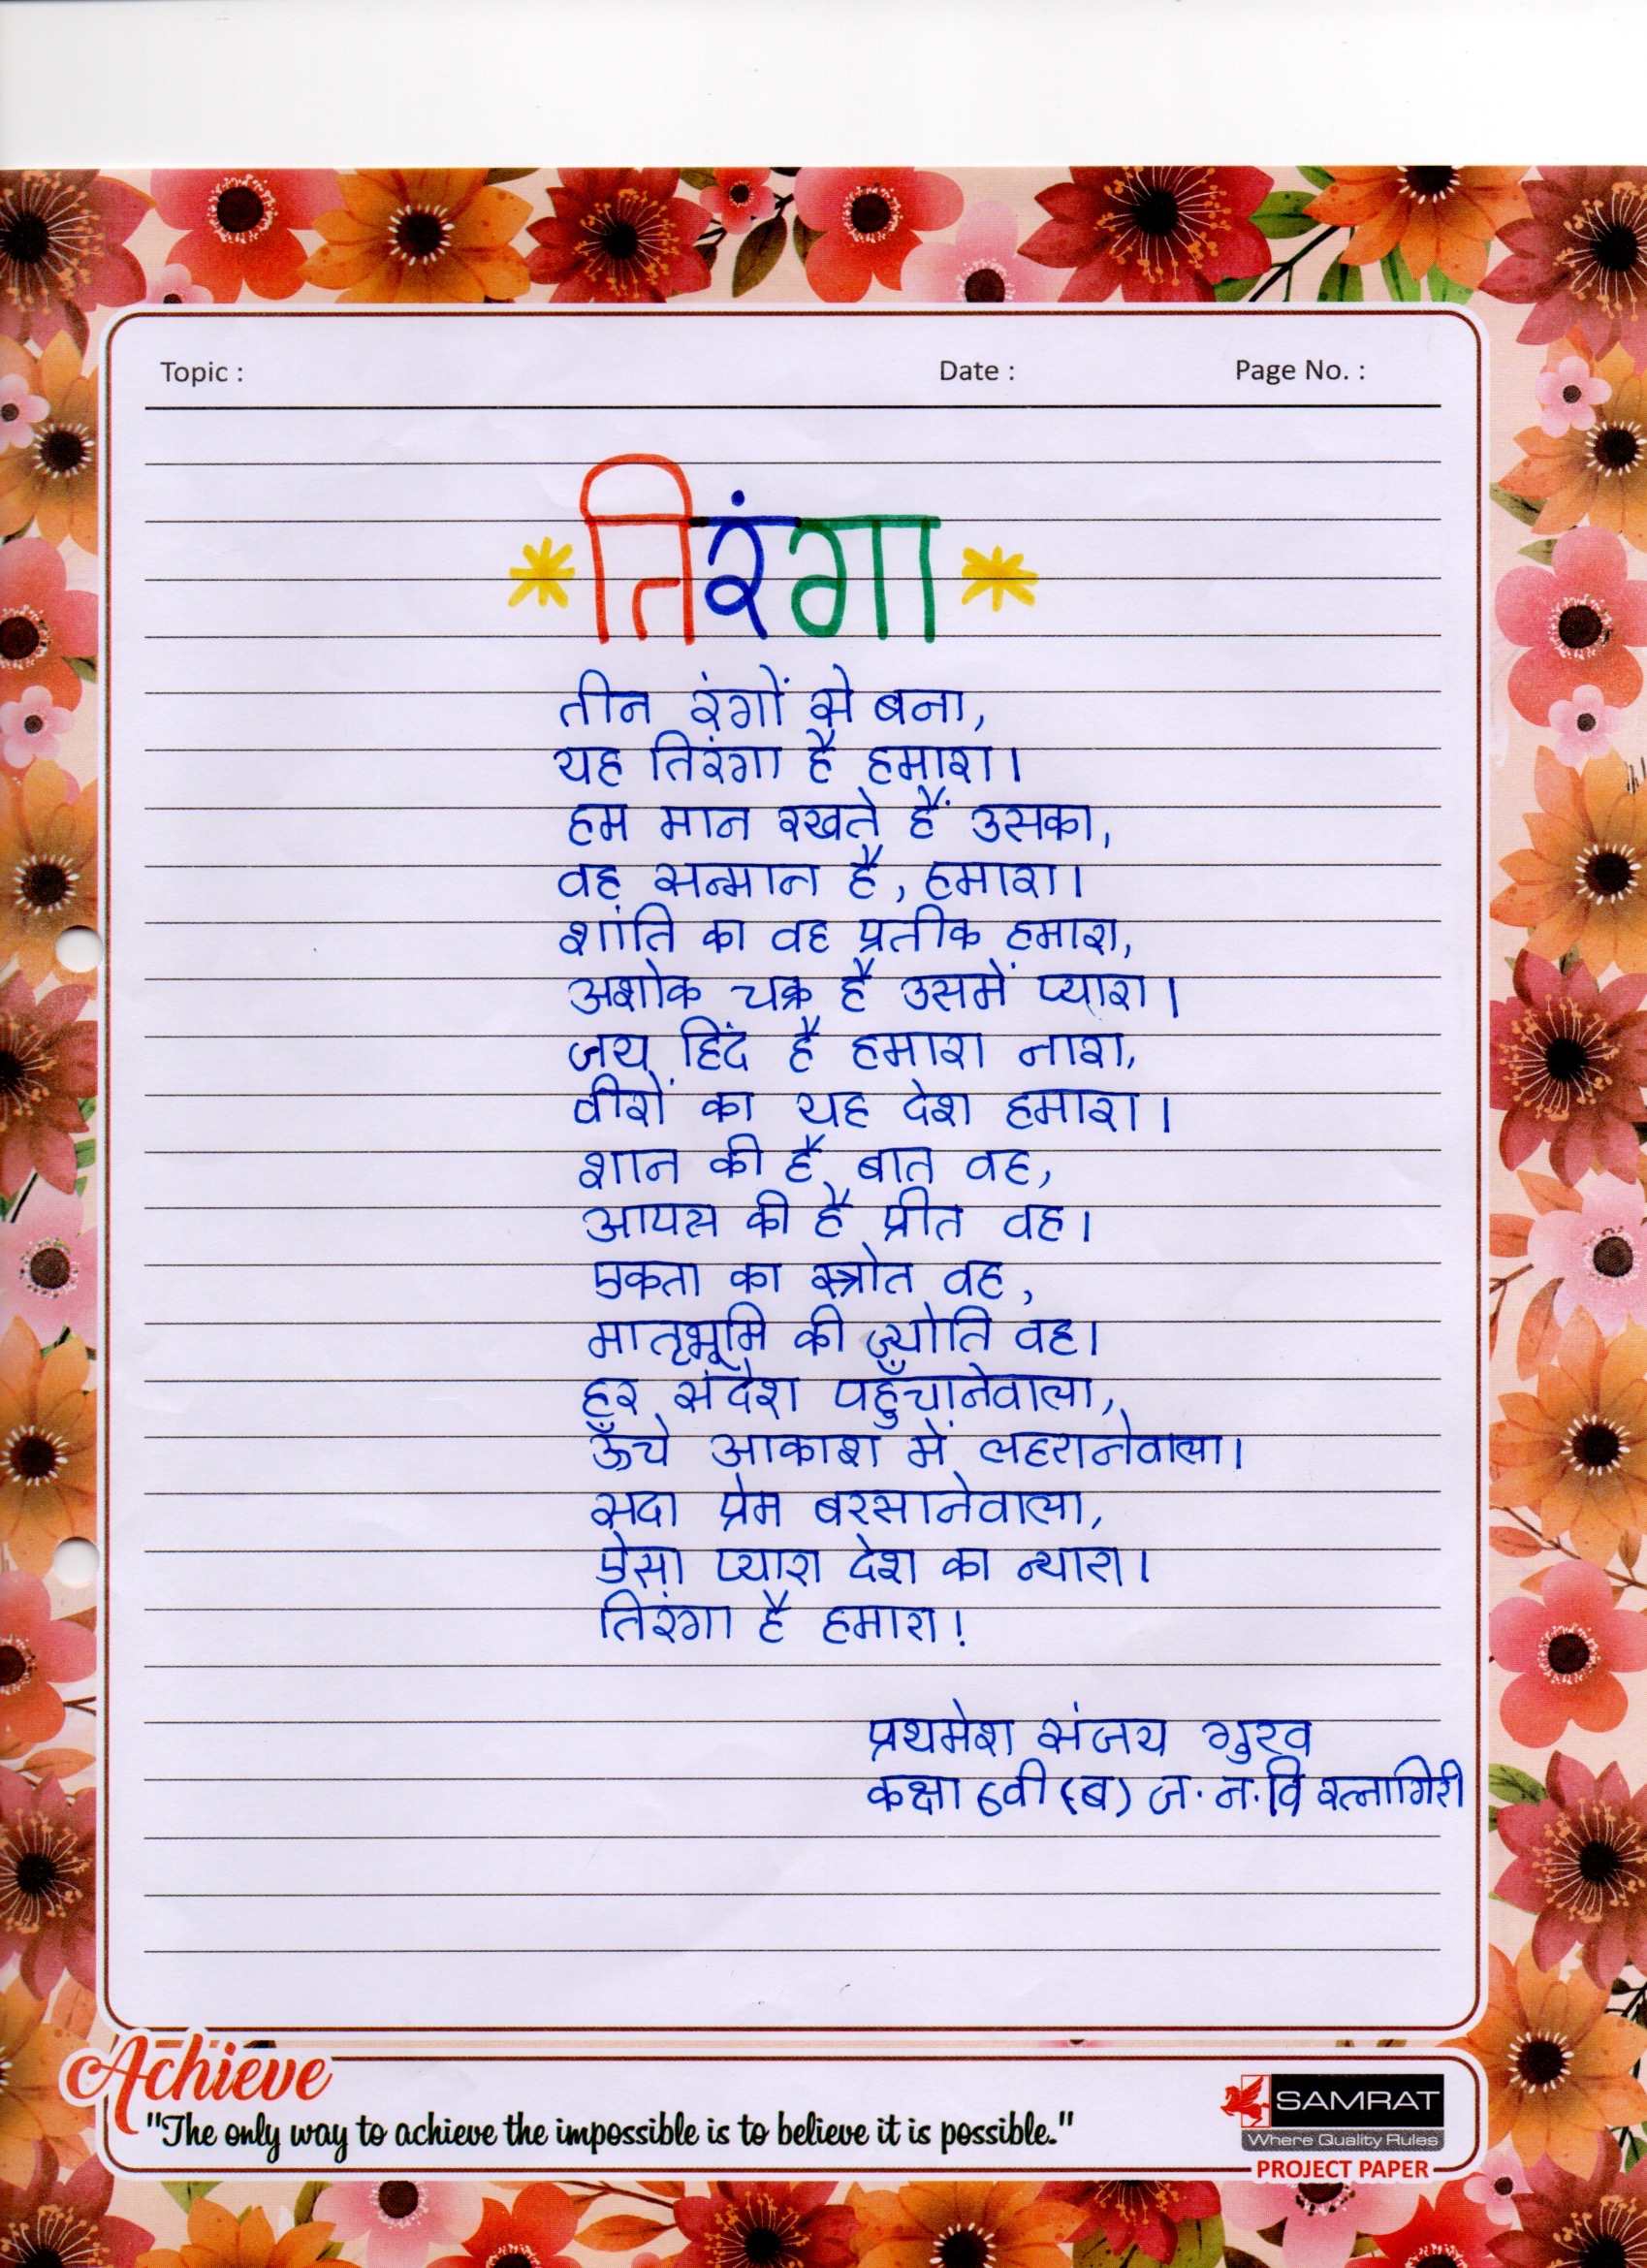 Topic : Date : Page No. :
तिरंगा
तीन रंगों से बना,
यह तिरंगा है हमारा।
हम मान रखते हैं उसका,
वह सन्मान है, हमारा।
शांति का वह प्रतीक हमारा,
अशोक चक्र है उसमें प्यारा।
जय हिंद है हमारा नारा,
वीरों का यह देश हमारा।
शान की है बात वह,
आपस की है प्रीत वह।
एकता का स्त्रोत वह,
मातृभूमि की ज्योति वह।
हर संदेश पहुँचानेवाला,
ऊँचे आकाश में लहरानेवाला।
सदा प्रेम बरसानेवाला,
ऐसा प्यारा देश का न्यारा।
तिरंगा है हमारा!
प्रथमेश संजय गुरव
कक्षा 6वी (ब) ज. न. वि रत्नागिरी
Achieve
"The only way to achieve the impossible is to believe it is possible."
SAMRAT
Where Quality Rules
PROJECT PAPER